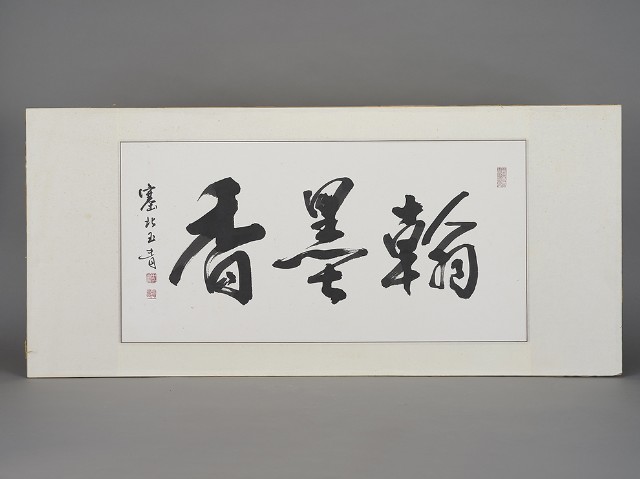 翰墨香
塞北玉青